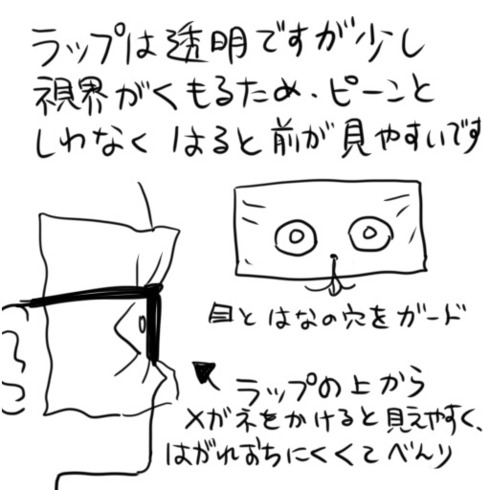 ラップは透明ですが少し
視界がくもるため、ピーンと
しわなく はると前が見やすいです
目とはなの穴をガード
ラップの上から
メガネをかけると見えやすく、
はがれおちにくくてべんり